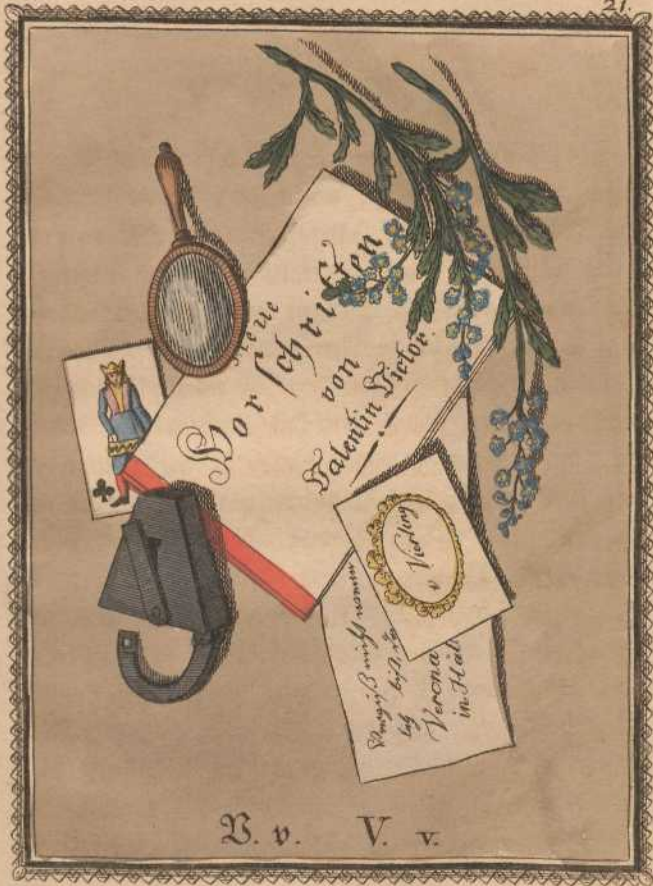 21.
eue
Vorſchriften
von
Valentin Victor.
v Vierling
Vergiß nicht
Verona
in Ital
V. v. V. v.